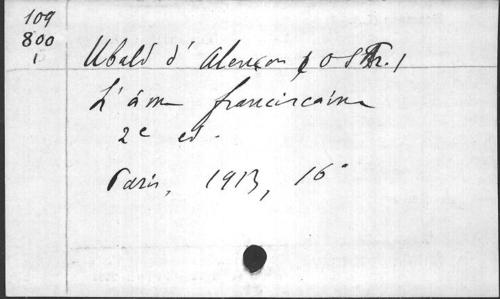 109
800
1
Ubald d' Alençon (OSFr.)
L'âme franciscaine
2e ed.
Paris, 1913, 16°